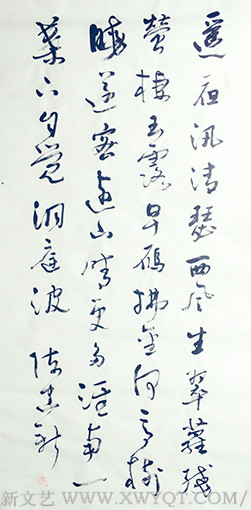 遥夜汎清瑟西风生翠蘿残
螢棲玉露早雁拂金河高树
晓还密遠山晴更多淮南一
葉下自觉洞庭波
新文艺 / WWW.XWYQT.COM/